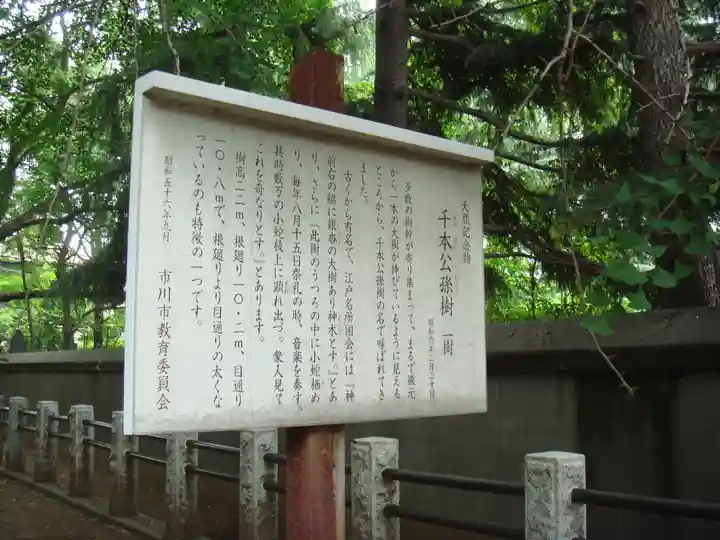 天然記念物
千本公孫樹 一樹
昭和六年二月二十日
多数の樹幹が寄り集まって、まるで根元
から一本の大樹が伸びているように見える
ところから、千本公孫樹の名で呼ばれてき
ました。
古くから有名で、江戸名所図会には『神
前右の脇に銀杏の大樹あり神木とす。』とあ
り、さらに『此樹のうつろの中に小蛇栖め
り、毎年八月十五日祭礼の時、音楽を奏す。
其時数万の小蛇枝上に顕れ出づ。衆人見て
これを奇なりとす。』とあります。
樹高二二m、根廻り一〇・二m、目通り
一〇・八mで、根廻りより目通りの太くな
っているのも特徴の一つです。
昭和五十六年九月
市川市教育委員会